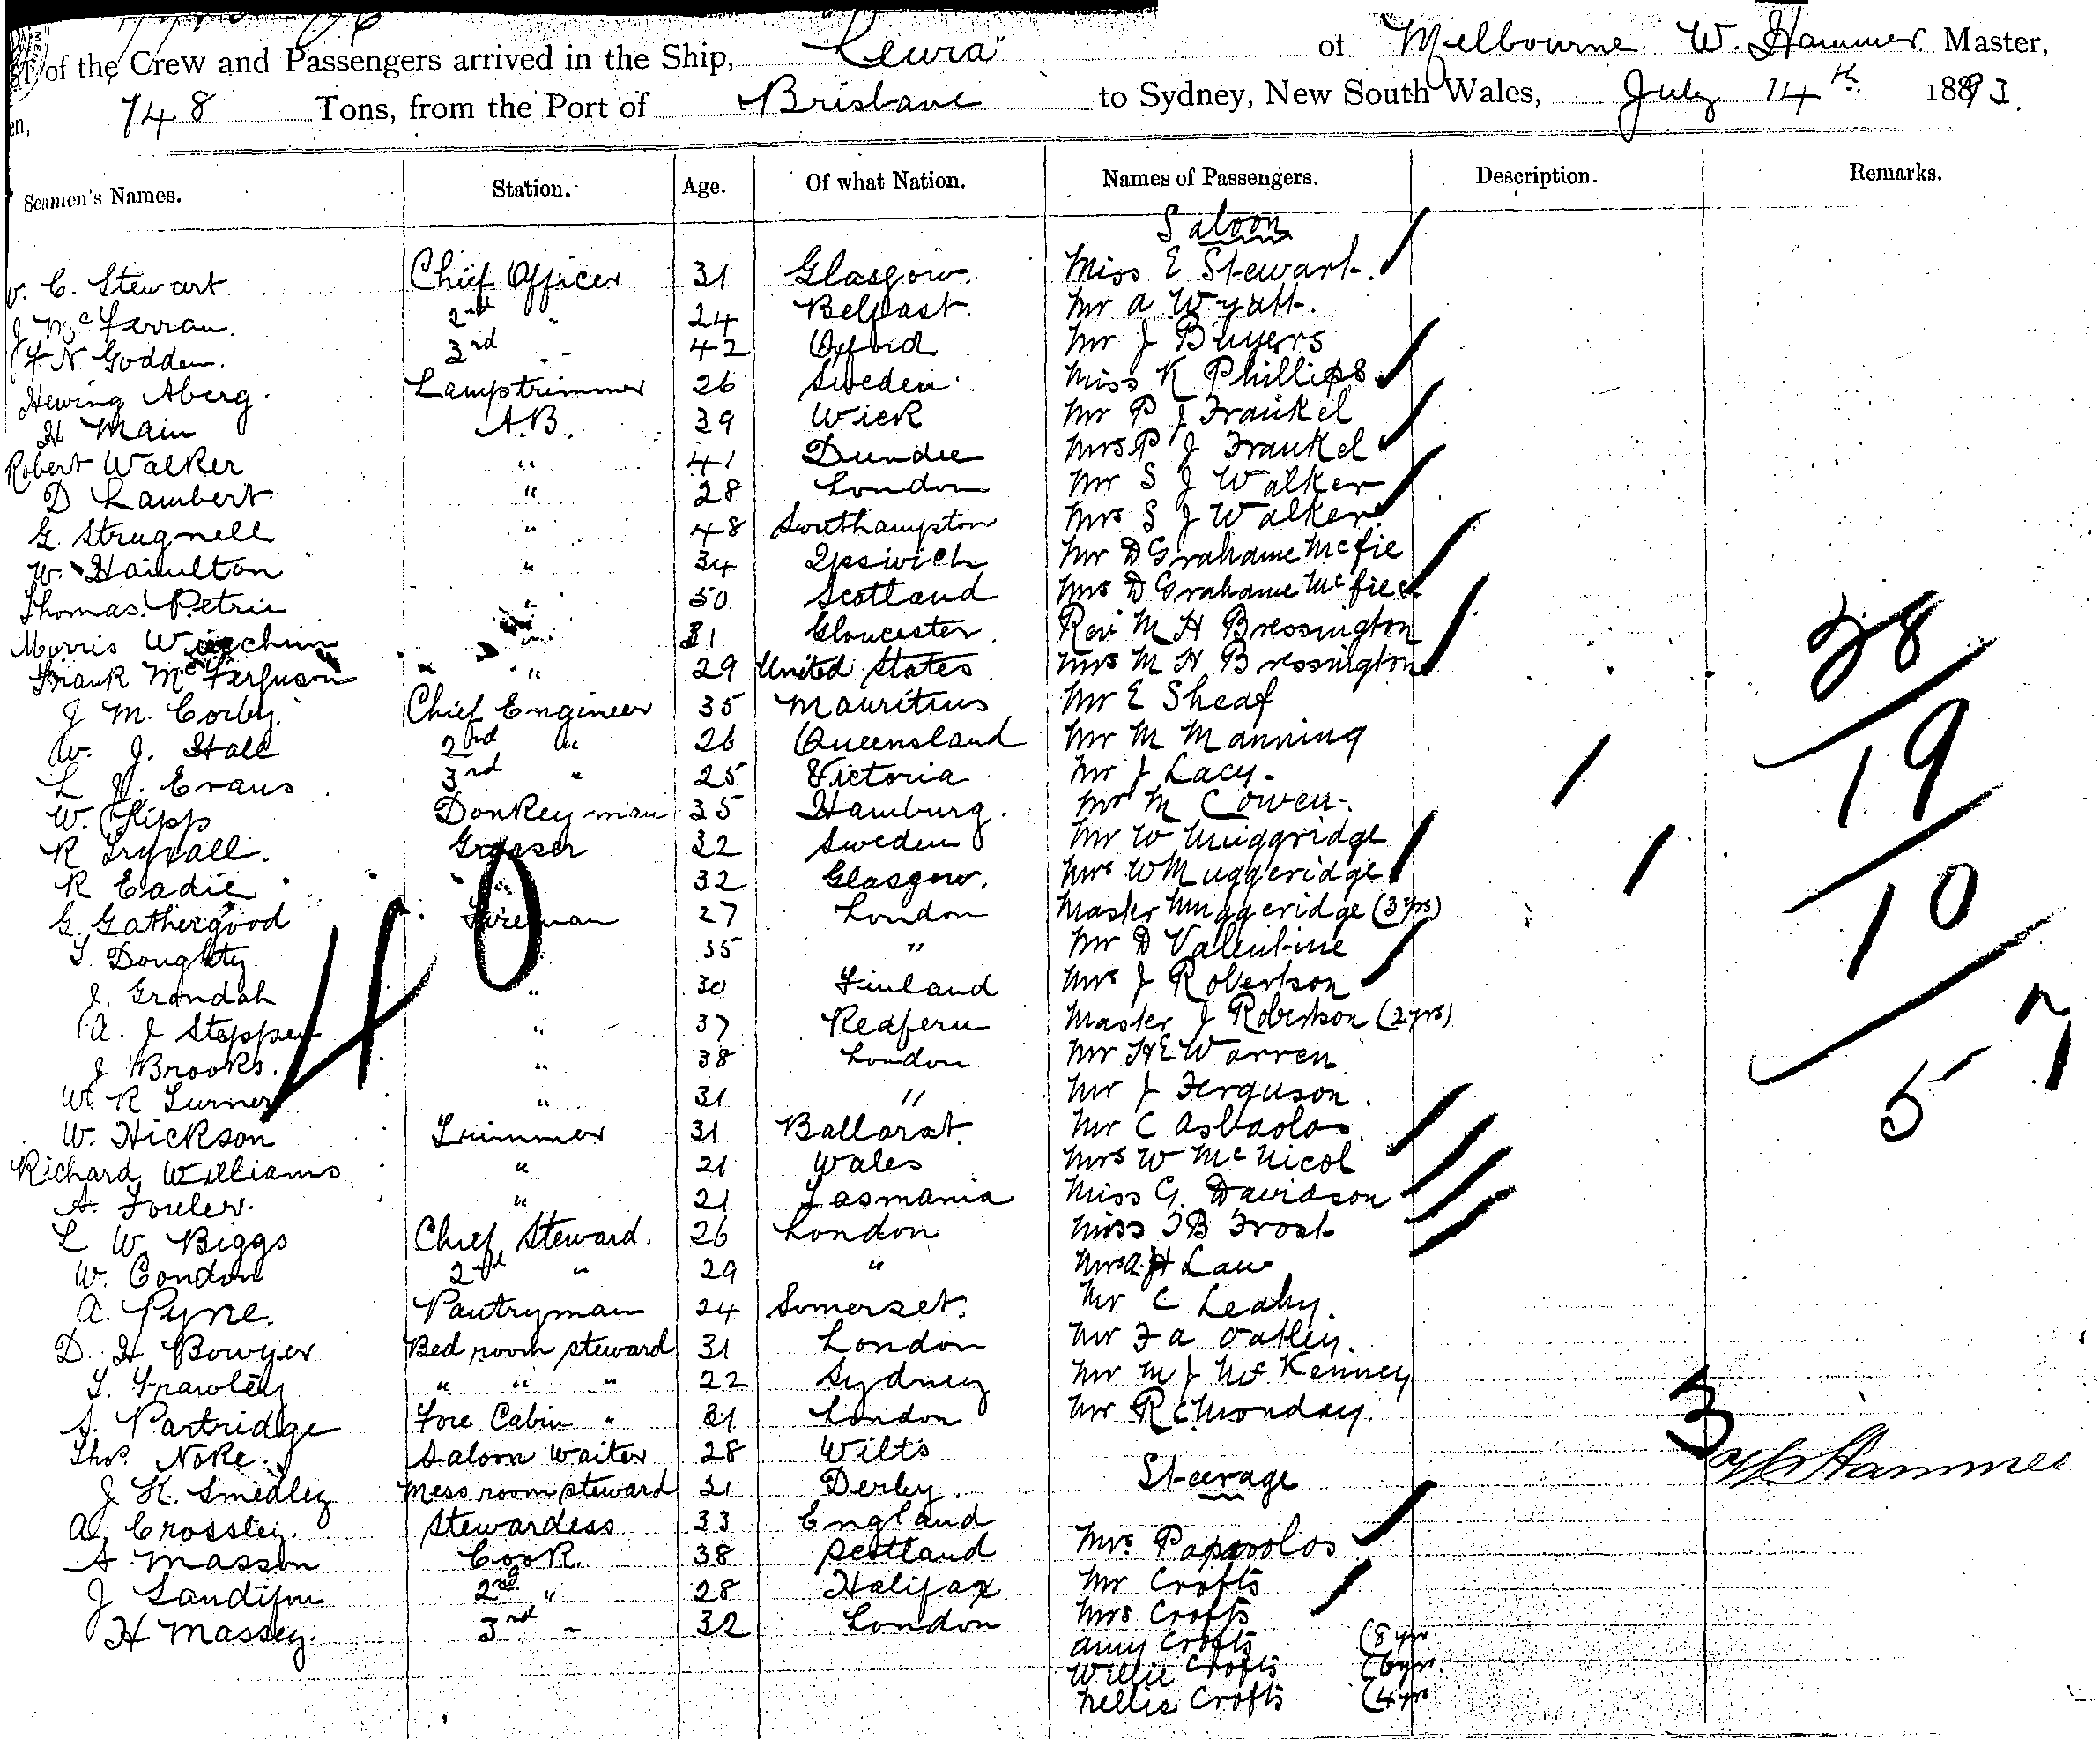 of the Crew and Passengers arrived in the Ship, "Lewra" of Melbourne W. Hammer Master,
748 Tons, from the Port of Brisbane to Sydney, New South Wales, July 14th 1893.
Seamen's Names. Station. Age. Of what Nation. Names of Passengers. Description. Remarks.
Saloon
C. Stewart Chief Officer 31 Glasgow. Miss E Stewart.
J McFerran. 2nd " 24 Belfast. Mr A Wyatt.
F N. Godden. 3rd " 42 Oxford Mr J Buyers
Hewing Aberg. Lamptrimmer 26 Sweden. Miss K Phillips
H Main A.B. 39 Wick Mr P J Frankel
Robert Walker " 41 Dundee Mrs P J Frankel
D Lambert " 28 London Mr S J Walker
G. Strugnell " 48 Southampton Mrs S J Walker
W. Hamilton " 34 Ipswich Mr D Grahame McFie
Thomas Petrie " 50 Scotland Mrs D Grahame McFie
Morris " 31 Gloucester. Rev M H Bressington
Frank McFerguson " 29 United States. Mrs M H Bressington
J M. Corby. Chief Engineer 35 Mauritius Mr E Sheaf
W. J. Hall 2nd " 26 Queensland Mr M Manning
L J. Evans 3rd " 25 Victoria Mr J Lacy.
W. Hipp Donkeyman 35 Hamburg. Mr M Cowen.
R Greaser 32 Sweden Mr W Muggridge
R Eadie " 32 Glasgow. Mrs W Muggeridge
G. Gathergood Fireman 27 London Master Muggeridge (3 yrs)
T. Doughty. 35 " Mr D Valentine
J. Grondah " 30 Finland Mrs J Robertson
A. J Stepper " 37 Redfern Master J Robertson (2 yrs)
J Brooks. " 38 London Mr H E Warren
W. R Turner " 31 " Mr J Ferguson.
W. Hickson Trimmer 31 Ballarat. Mr C
Richard Williams " 21 Wales Mrs W McNicol
A. Fouler. " 21 Tasmania Miss G. Davidson
L W. Biggs Chief Steward. 26 London Miss T B Frost
W. Condon 2nd " 29 " Mrs A H Law
A. Pyne. Pantryman 24 Somerset. Mr C Leahy.
D. H Bowyer Bed room steward 31 London Mr F A Oatley.
T. Frawley " " " 22 Sydney Mr M J McKenney
A. Partridge Fore Cabin " 31 London Mr R C Monday.
Thos. Noke. Saloon Waiter 28 Wilts
Steerage
J H. Smedley Mess room steward 21 Derby.
A. Crossley. Stewardess 33 England
A Masson Cook. 38 Scotland Mrs Papasolos
J Sandifon 2nd " 28 Halifax Mr Crofts
H Massey. 3rd " 32 London Mrs Crofts
Amy Crofts (8 yrs
Willie Crofts (6 yrs
Nellie Crofts (4 yrs
40
38
19
10
57
3
W Hammer